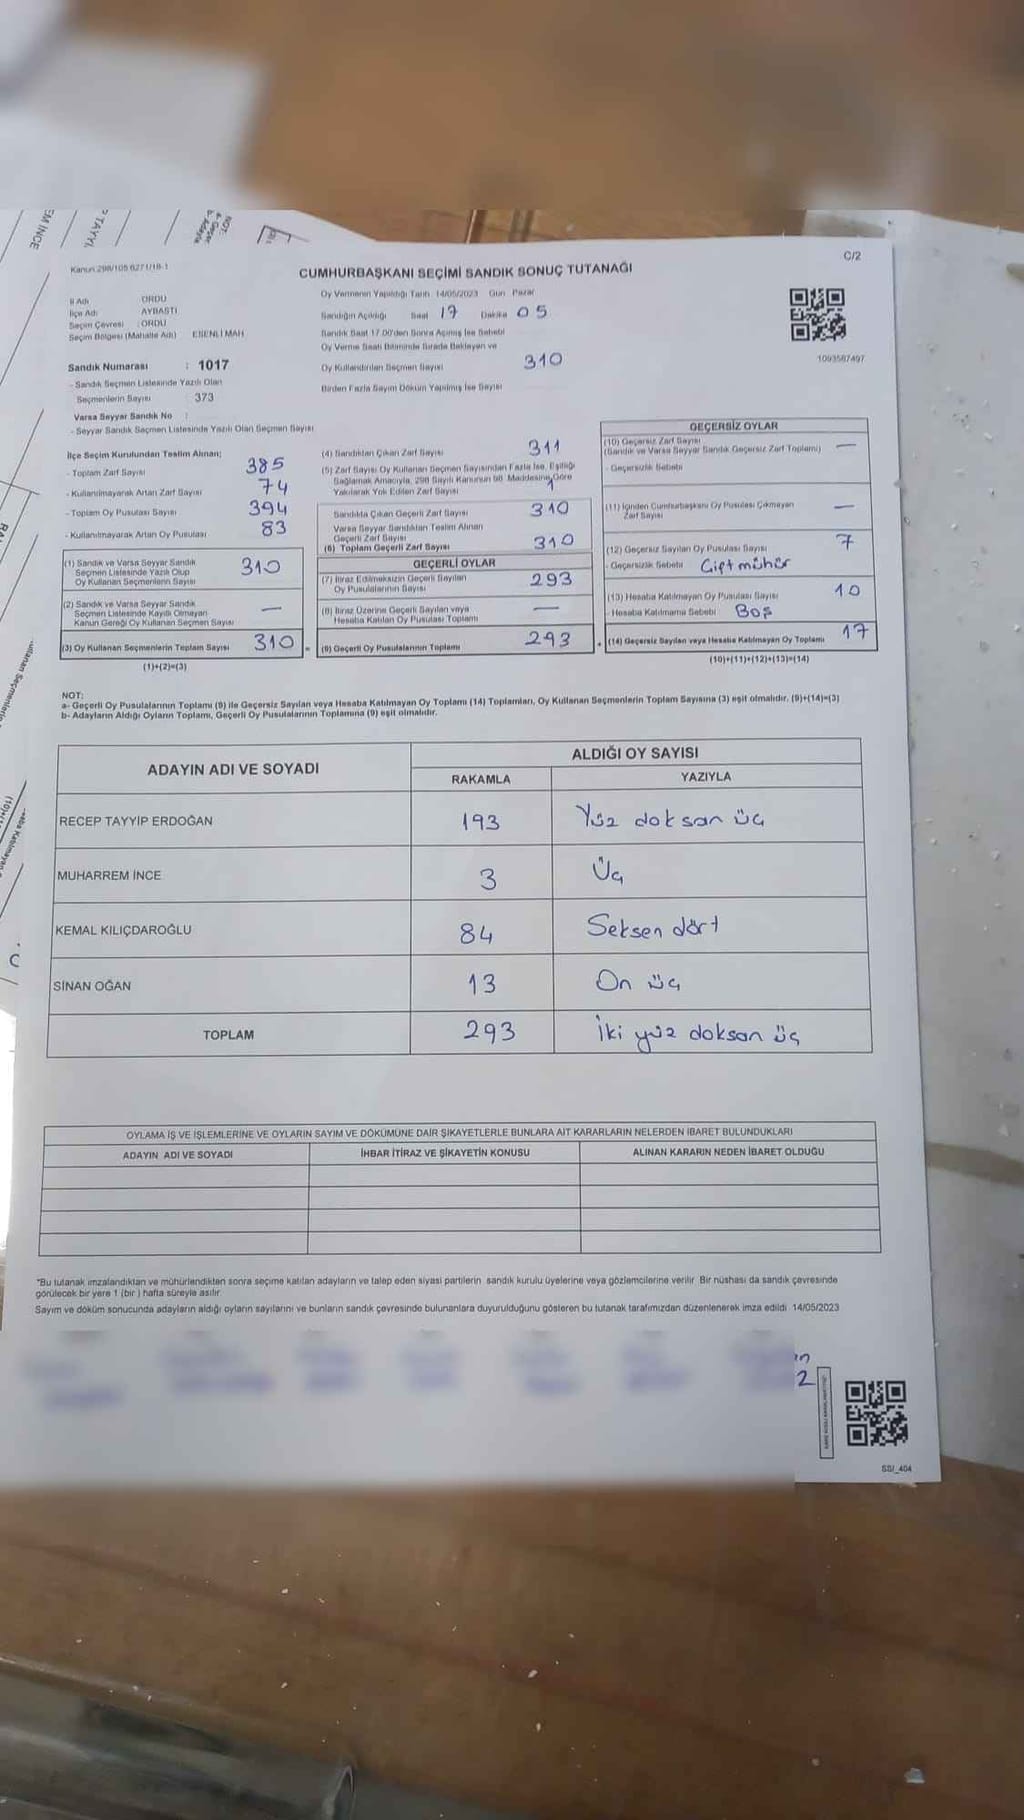 EM İNCE
TAYYİ
NOT:
C/2
Kanun 298/105 6271/18-1
CUMHURBAŞKANI SEÇİMİ SANDIK SONUÇ TUTANAĞI
İl Adı ORDU
İlçe Adı AYBASTI
Seçim Çevresi : ORDU
Seçim Bölgesi (Mahalle Adı) ESENLİ MAH
Oy Vermenin Yapıldığı Tarih 14/05/2023 Gün Pazar
Sandığın Açıldığı Saat 17 Dakika 05
Sandık Saat 17.00'den Sonra Açılmış İse Sebebi
Oy Verme Saati Bitiminde Sırada Bekleyen ve
Oy Kullandırılan Seçmen Sayısı 310
Birden Fazla Sayım Döküm Yapılmış İse Sayısı
1093587497
Sandık Numarası : 1017
- Sandık Seçmen Listesinde Yazılı Olan
Seçmenlerin Sayısı 373
Varsa Seyyar Sandık No :
- Seyyar Sandık Seçmen Listesinde Yazılı Olan Seçmen Sayısı
İlçe Seçim Kurulundan Teslim Alınan;
- Toplam Zarf Sayısı 385
- Kullanılmayarak Artan Zarf Sayısı 74
- Toplam Oy Pusulası Sayısı 394
- Kullanılmayarak Artan Oy Pusulası 83
(1) Sandık ve Varsa Seyyar Sandık
Seçmen Listesinde Yazılı Olup
Oy Kullanan Seçmenlerin Sayısı 310
(2) Sandık ve Varsa Seyyar Sandık
Seçmen Listesinde Kayıtlı Olmayan
Kanun Gereği Oy Kullanan Seçmen Sayısı —
(3) Oy Kullanan Seçmenlerin Toplam Sayısı 310 =
(1)+(2)=(3)
(4) Sandıktan Çıkan Zarf Sayısı 311
(5) Zarf Sayısı Oy Kullanan Seçmen Sayısından Fazla İse, Eşitliği
Sağlamak Amacıyla, 298 Sayılı Kanunun 98. Maddesine Göre
Yakılarak Yok Edilen Zarf Sayısı 1
Sandıkta Çıkan Geçerli Zarf Sayısı 310
Varsa Seyyar Sandıktan Teslim Alınan
Geçerli Zarf Sayısı
(6) Toplam Geçerli Zarf Sayısı 310
GEÇERLİ OYLAR
(7) İtiraz Edilmeksizin Geçerli Sayılan
Oy Pusulalarının Sayısı 293
(8) İtiraz Üzerine Geçerli Sayılan veya
Hesaba Katılan Oy Pusulası Toplamı —
(9) Geçerli Oy Pusulalarının Toplamı 293 +
GEÇERSİZ OYLAR
(10) Geçersiz Zarf Sayısı —
(Sandık ve Varsa Seyyar Sandık Geçersiz Zarf Toplamı)
- Geçersizlik Sebebi
(11) İçinden Cumhurbaşkanı Oy Pusulası Çıkmayan
Zarf Sayısı —
(12) Geçersiz Sayılan Oy Pusulası Sayısı 7
- Geçersizlik Sebebi Çift mühür
(13) Hesaba Katılmayan Oy Pusulası Sayısı 10
- Hesaba Katılmama Sebebi Boş
(14) Geçersiz Sayılan veya Hesaba Katılmayan Oy Toplamı 17
(10)+(11)+(12)+(13)=(14)
NOT:
a- Geçerli Oy Pusulalarının Toplamı (9) ile Geçersiz Sayılan veya Hesaba Katılmayan Oy Toplamı (14) Toplamları, Oy Kullanan Seçmenlerin Toplam Sayısına (3) eşit olmalıdır. (9)+(14)=(3)
b- Adayların Aldığı Oyların Toplamı, Geçerli Oy Pusulalarının Toplamına (9) eşit olmalıdır.
ADAYIN ADI VE SOYADI
ALDIĞI OY SAYISI
RAKAMLA YAZIYLA
RECEP TAYYİP ERDOĞAN 193 Yüz doksan üç
MUHARREM İNCE 3 Üç
KEMAL KILIÇDAROĞLU 84 Seksen dört
SİNAN OĞAN 13 On üç
TOPLAM 293 İki yüz doksan üç
OYLAMA İŞ VE İŞLEMLERİNE VE OYLARIN SAYIM VE DÖKÜMÜNE DAİR ŞİKAYETLERLE BUNLARA AİT KARARLARIN NELERDEN İBARET BULUNDUKLARI
ADAYIN ADI VE SOYADI İHBAR İTİRAZ VE ŞİKAYETİN KONUSU ALINAN KARARIN NEDEN İBARET OLDUĞU
*Bu tutanak imzalandıktan ve mühürlendikten sonra seçime katılan adayların ve talep eden siyasi partilerin sandık kurulu üyelerine veya gözlemcilerine verilir. Bir nüshası da sandık çevresinde
görülecek bir yere 1 (bir ) hafta süreyle asılır.
Sayım ve döküm sonucunda adayların aldığı oyların sayılarını ve bunların sandık çevresinde bulunanlara duyurulduğunu gösteren bu tutanak tarafımızdan düzenlenerek imza edildi 14/05/2023
in
2
SSI_404